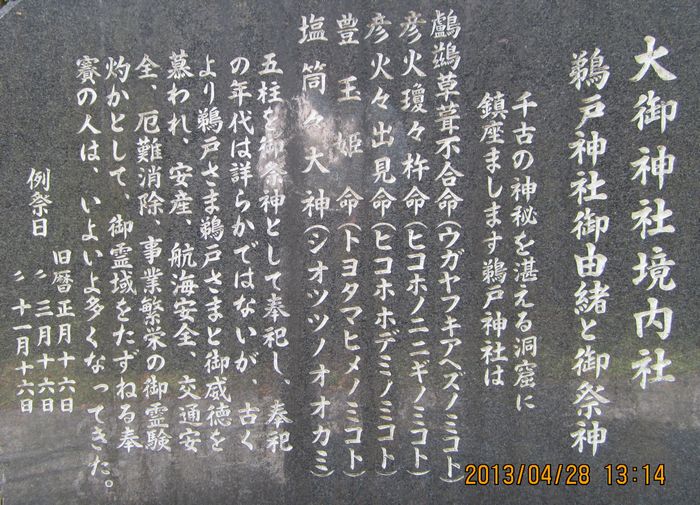 大御神社境内社
鵜戸神社御由緒と御祭神
千古の神秘を湛える洞窟に
鎮座まします鵜戸神社は
鸕鷀草葺不合命(ウガヤフキアヘズノミコト)
彦火瓊々杵命(ヒコホノニニギノミコト)
彦火々出見命(ヒコホホデミノミコト)
豊玉姫命(トヨタマヒメノミコト)
塩筒々大神(シオツツノオオカミ)
五柱を御祭神として奉祀し、奉祀
の年代は詳らかではないが、古く
より鵜戸さま鵜戸さまと御威徳を
慕われ、安産、航海安全、交通安
全、厄難消除、事業繁栄の御霊験
灼かとして、御霊域をたずねる奉
賽の人は、いよいよ多くなってきた。
例祭日
旧暦正月十六日
〃三月十六日
〃十一月十六日
2013/04/28 13:14